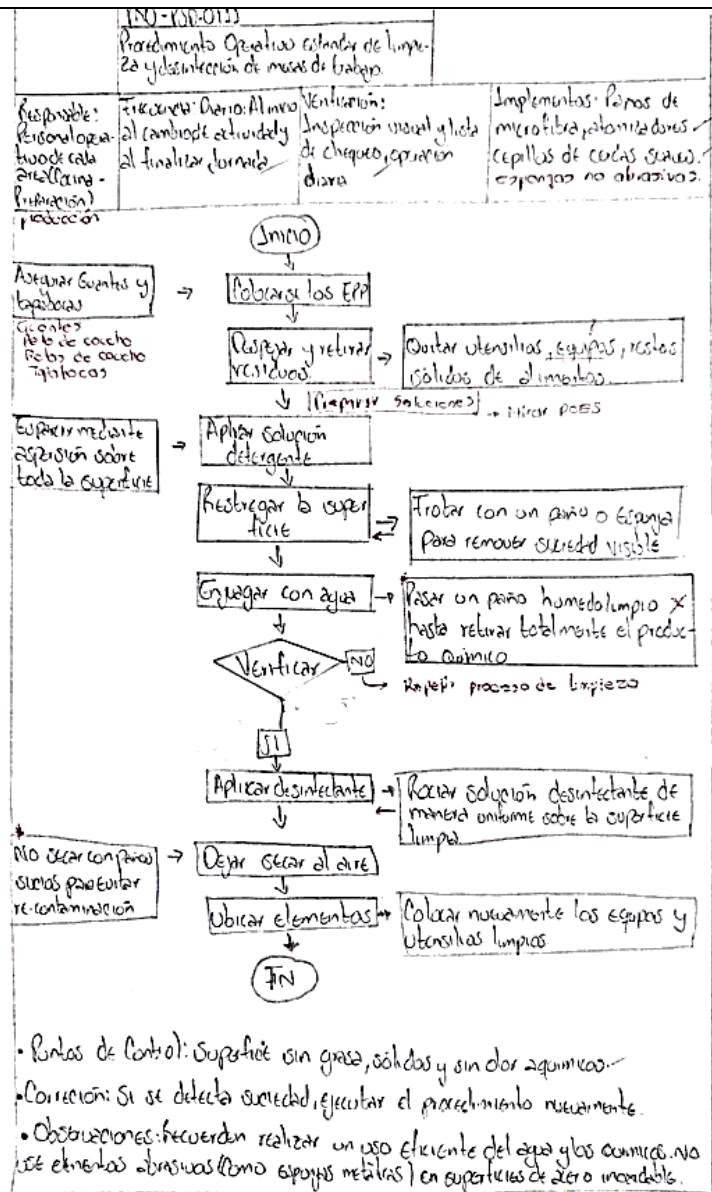 INO-PSD-0133
Procedimiento Operativo estandar de limpie-
za y desinfección de mesas de trabajo.
Responsable:
Personal opera-
tivo de cada
area (cocina -
Preparación)
producción
Frecuencia: Diario: Al inicio
al cambio de actividad y
al finalizar jornada
Verificación:
Inspección visual y lista
de chequeo, operación
diaria
Implementos: Paños de
microfibra, atomizadores
cepillos de cerdas suaves.
esponjas no abrasivas.
Inicio
Asegurar Guantes y
tapabocas
Guantes
Peto de caucho
Botas de caucho
Tapabocas
Colocarse los EPP
Despejar y retirar
residuos.
Quitar utensilios, equipos, restos
solidos de alimentos.
Preparar soluciones
Mirar POES
Esparcir mediante
aspersión sobre
toda la superficie
Aplicar solución
detergente
Restregar la super
ficie
Frotar con un paño o Esponja
para remover suciedad visible
Enjuagar con agua
Pasar un paño humedo limpio x
hasta retirar totalmente el produc-
to Quimico
Verificar
NO
Repetir proceso de limpieza
SI
Aplicar desinfectante
Rociar solución desinfectante de
manera uniforme sobre la superficie
limpia
NO secar con paños
sucios para evitar
re-contaminación
Dejar secar al aire
Ubicar elementos
Colocar nuevamente los equipos y
utensilios limpios
FIN
• Puntos de Control: Superficie sin grasa, sólidos y sin olor a quimicos.
• Corrección: Si se detecta suciedad, ejecutar el procedimiento nuevamente.
• Observaciones: Recuerden realizar un uso eficiente del agua y los quimicos. NO
use elmentos abrasivos (como esponjas metálicas) en superficies de acero inoxidable.